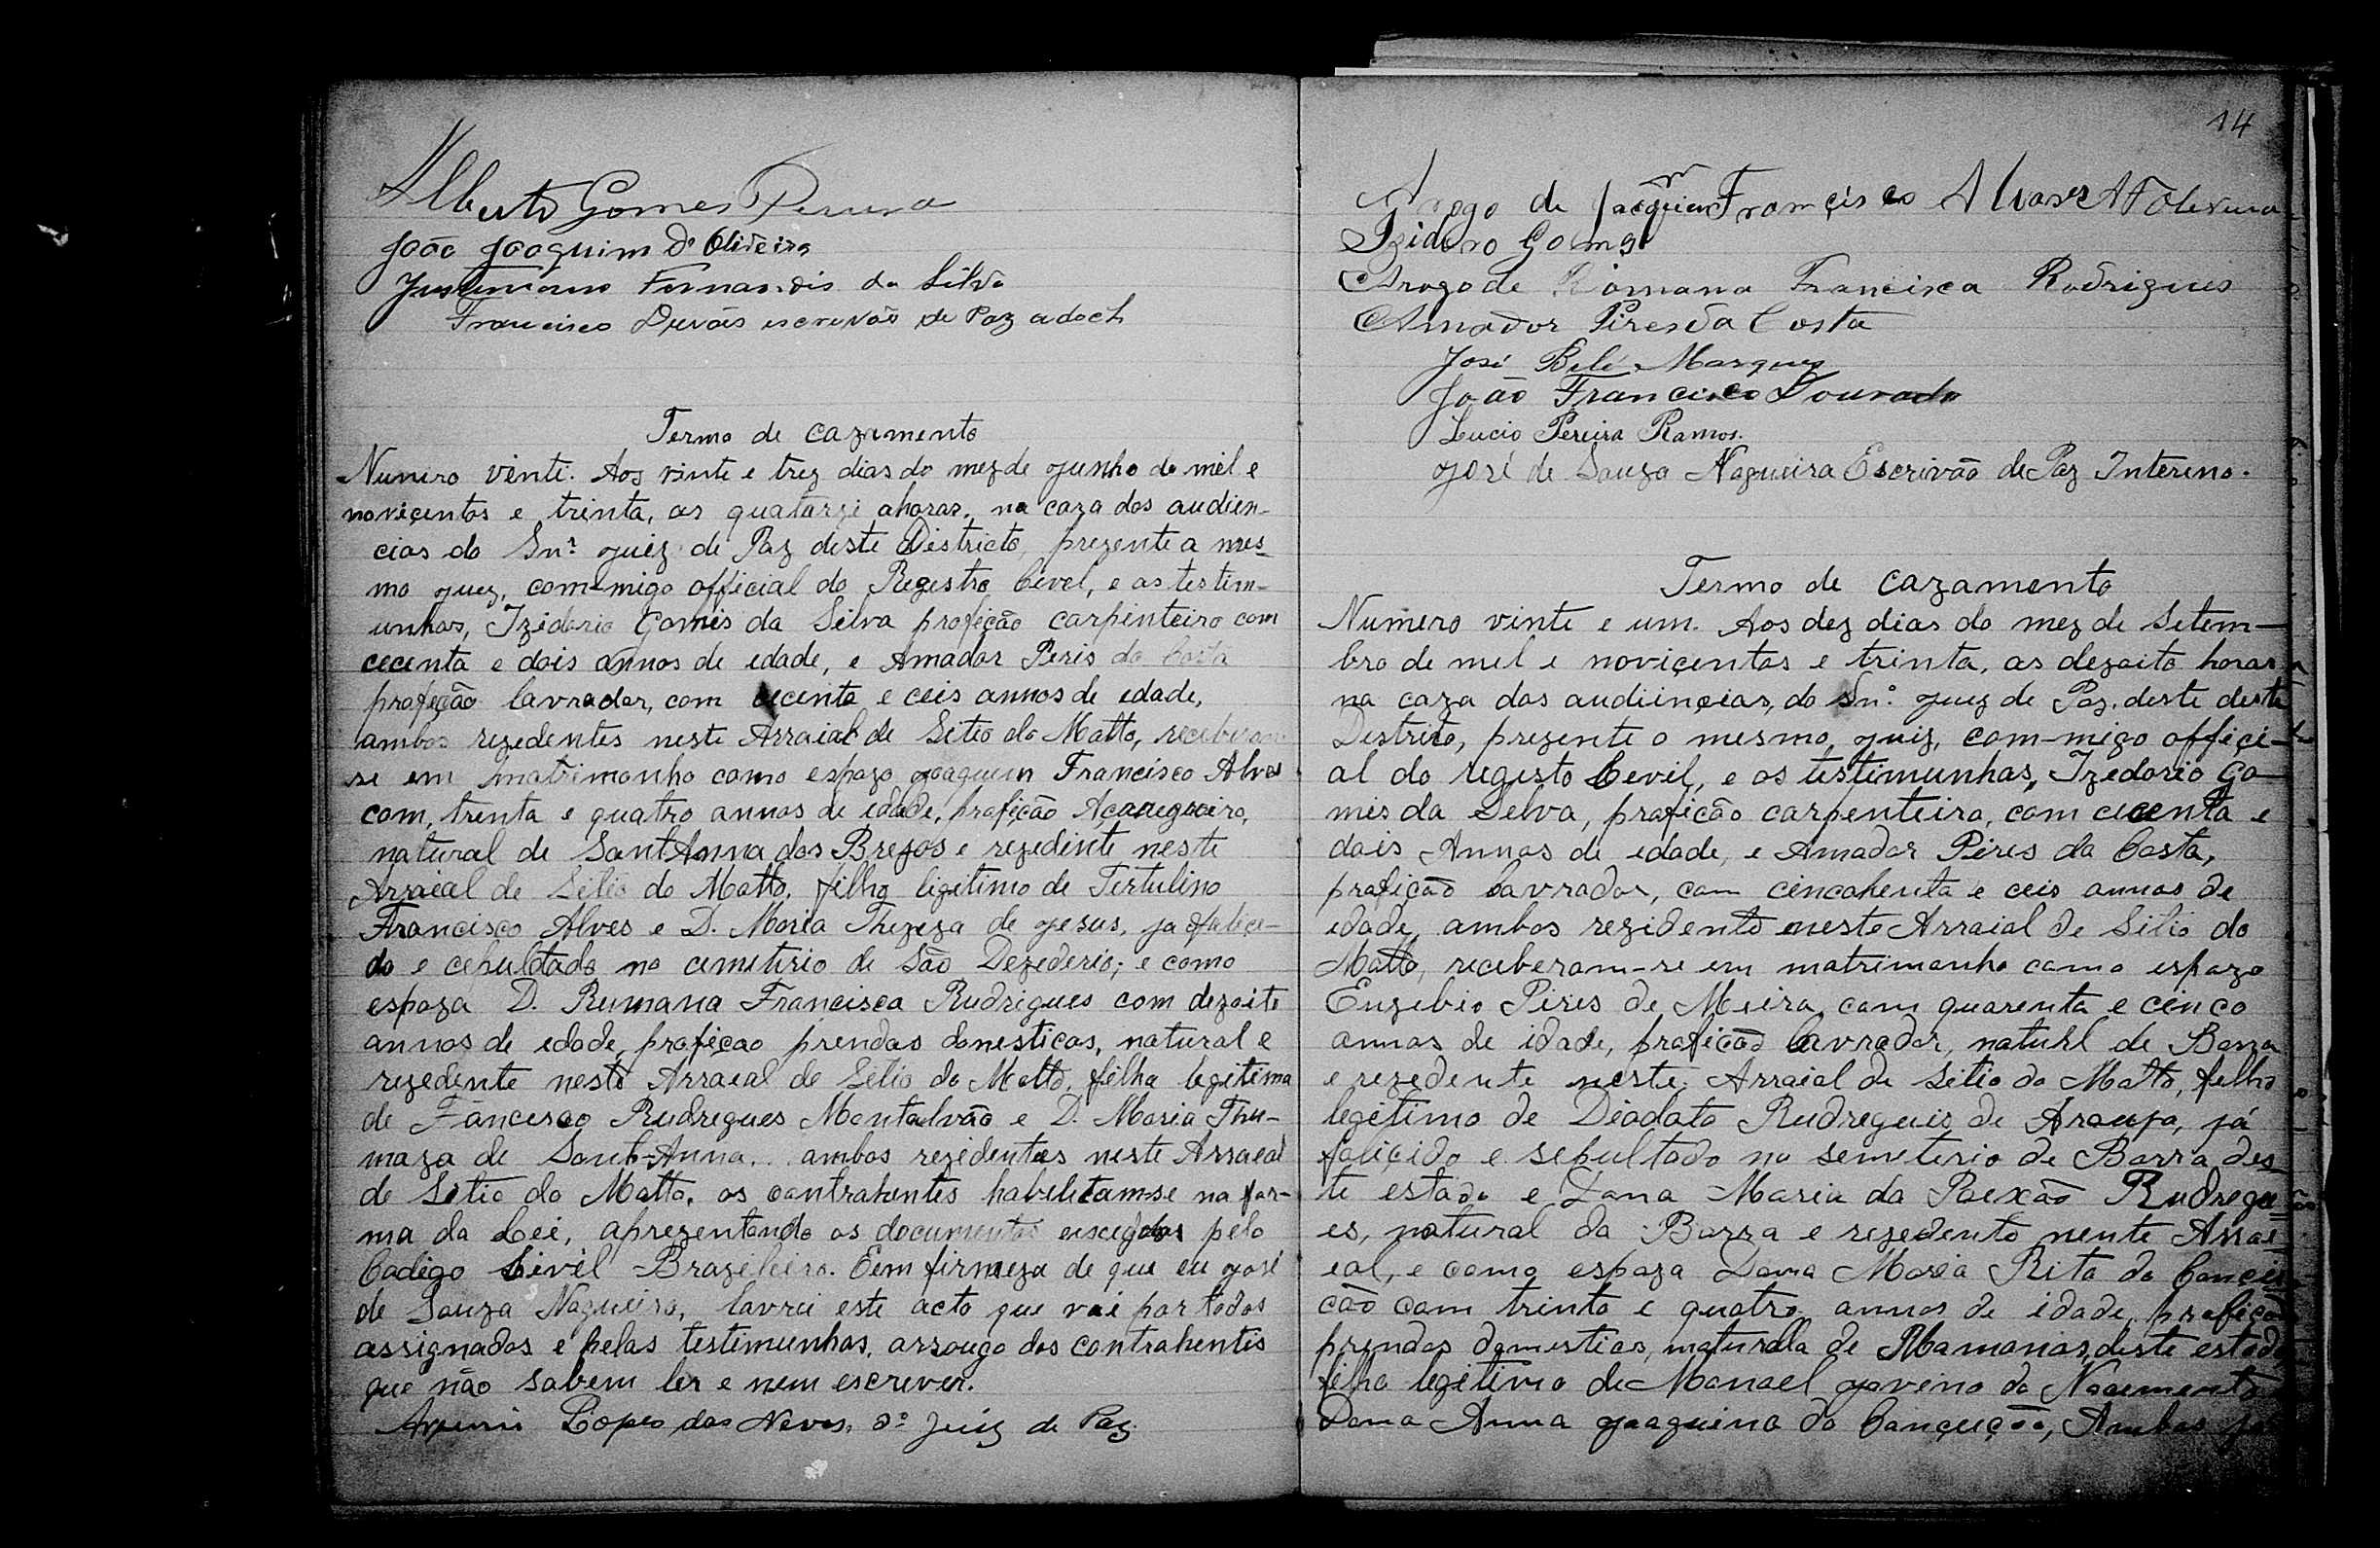 Alberto Gomes Pereira
João Joaquim D'Oliveira
Justiniano Fernandis da Silva
Francisco escrivão de Paz adoch
Termo de cazamento
Numero vinte. Aos vinte e trez dias do mez de junho de mil e
noviçentos e trinta, as quatarze ahoras, na caza das audien-
cias do Snr. juiz de Paz deste Districto, prezente a mes-
mo juez, com-migo official do Registro Civel, e as testim-
unhas, Izidorio Gomes da Silva profição carpinteiro com
cecenta e dois annos de edade, e Amador Peris da Costa
profeção lavrador, com cecenta e ceis annos de edade,
ambos rezedentes neste Arraial de Sitio do Matto, receberam
se em matrimonho como espozo joaquim Francisco Alves
com, trenta e quatro annos de edade, profição Açougueiro,
natural de SantAnna dos Brejos e rezedente neste
Arraial de Sitio do Matto, filho ligitimo de Tertulino
Francisco Alves e D. Maria Thezeza de jesus, ja faliçi-
do e cepultado no cemeterio de São Dezederio; e como
espoza D. Rumana Francisca Rudrigues com dezoito
annos de edade, profiçao prendas domesticas, natural e
rezedente neste Arraial de Sitio do Matto, filha legitima
de Fancesco Rudregues Montalvão e D. Maria Thu-
maza de Sant-Anna, ambos rezidentes neste Arraeal
de Sitio do Matto, os contrahentes habelitam-se na for-
ma da Lei, aprezentando os documentos pelo
Codigo Civil Brazileiro. E em firmeza de que eu josé
de Souza Nogueira, lavrei este acto que vai par todos
assignados e pelas testimunhas, arrougo dos contrahentis
que não sabem ler e nem escrever.
Lopes das Neves, 2º juiz de Paz
14
Arogo de joaquim Francisco Alvares A F Oliveira
Izidoro Gomes
Arogo de Romana Francisca Rodrigues
Amador Pires da Costa
José Belé Marques
João Francisco Dourado
Lucio Pereira Ramos.
josé de Souza Nogueira Escrivão de Paz Intereno.
Termo de cazamento
Numero vinte e um. Aos dez dias do mez de Setem-
bro de mel e noviçentos e trinta, as dezoito horas
na caza das audiençias, do Snº. juez de Paz, deste deste
Destrito, prezente o mesmo juiz, com-migo offiçi-
al do registo Cevil, e os testimunhas, Izedorio Go-
mis da Selva, profição carpenteiro, com cecenta e
dois Annos de edade, e Amador Pires da Costa,
profição lavrador, com cincohenta e ceis annos de
edade, ambos rezidente neste Arraial de Sitio do
Matto, receberam-se em matrimonho como espozo
Euzebio Pires de Meira, com quarenta e cinco
annos de idade, profição lavrador, naturl de Barra
e rezedente neste Arraial de Sitio do Matto, filho
legitimo de Diodato Rudreguis de Araujo, já
faliçido e sepultado no semeterio de Barra des-
te estado e Dona Maria da Paexão Rudregu-
es, natural da Barra e rezedente nente Arrai-
eal, e como espoza Dona Maria Rita da Concei-
ção com trinta e quatro annos de idade, profição
prendas domesticas, naturalla de Mamonas, deste estado
filha legitima de Manael joveino do Nacimento
Dona Anna joaquina da Conçuição, Ambos já